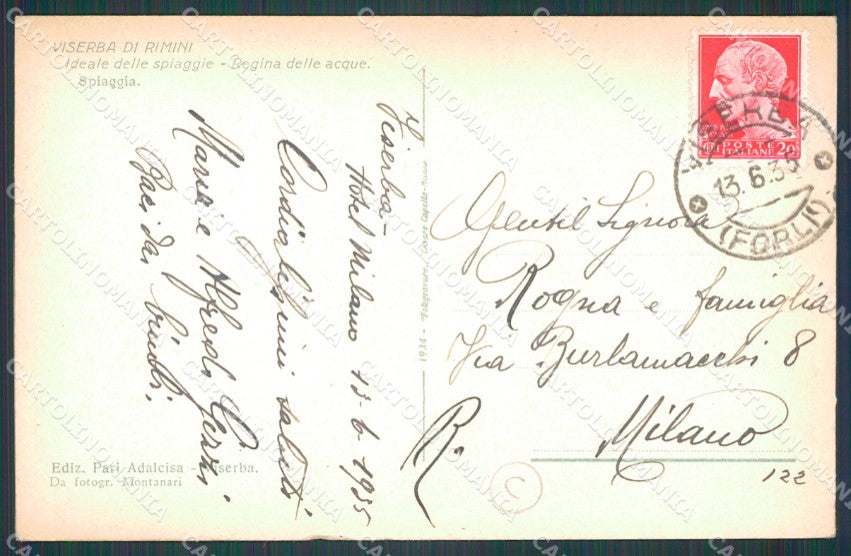 VISERBA DI RIMINI
Ideale delle spiaggie - Regina delle acque.
Spiaggia.
Viserba -
Hotel Milano 13-6-1935
Cordialissimi saluti
Maria e Alfredo
Baci dai bimbi.
Ediz. Pari Adalcisa - Viserba.
Da fotogr. Montanari
1934 -
R.
C
POSTE
ITALIANE 20
VISERBA
13.6.35
(FORLI)
Gentil Signora
Rogna e famiglia
Via Burlamacchi 8
Milano
122
CARTOLINOMANIA